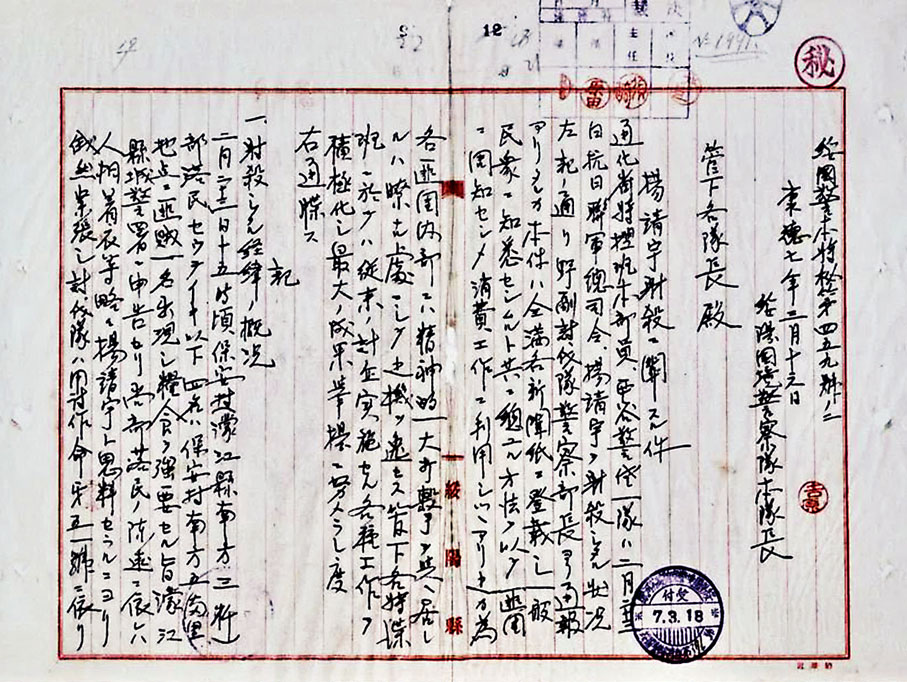 秘
綏国警本特機第四五九号ノ二
康徳七年三月十三日
綏陽国境警察隊本隊長
管下各隊長殿
楊靖宇射殺ニ関スル件
通化省特捜班本部員西谷警佐一隊ハ二月二十三
日抗日聯軍総司令楊靖宇ヲ射殺シタル状況
左記ノ通リ野副討伐隊警察部長ヨリ通報
アリタルカ本件ハ全満各新聞紙ニ登載シ一般
民衆ニ知悉センムルト共ニ組ユル方法ヲ以テ匪団
ニ周知センメ消費工作ニ利用シツツアリ之カ為
各匪団内部ニハ精神的一大打撃ヲ与ヘ居
ルハ瞭カナル処ニシテ之機ヲ逸セス管下各特諜
班ニ於テハ従来ノ計企実施セル各種工作ヲ
積極化シ最大ノ成果挙揚ニ努メラレ度
右通牒ス
記
一、射殺シタル経緯ノ概況
二月二十三日十五時頃保安村濛江縣南方三粁
部落民 以下四名ハ保安村南方五満里
地点ニ匪賊一名出現シ糧食ヲ強要セル旨濛江
縣城警署ニ申告セリ尚部落民ノ陳述ニ依ル
人相着衣等略々楊靖宇ト思料セラルルニヨリ
俄然緊張シ討伐隊ハ 討作命第五一号ニ依リ
綏陽縣
受付
7.3.18
№ 1991
主任